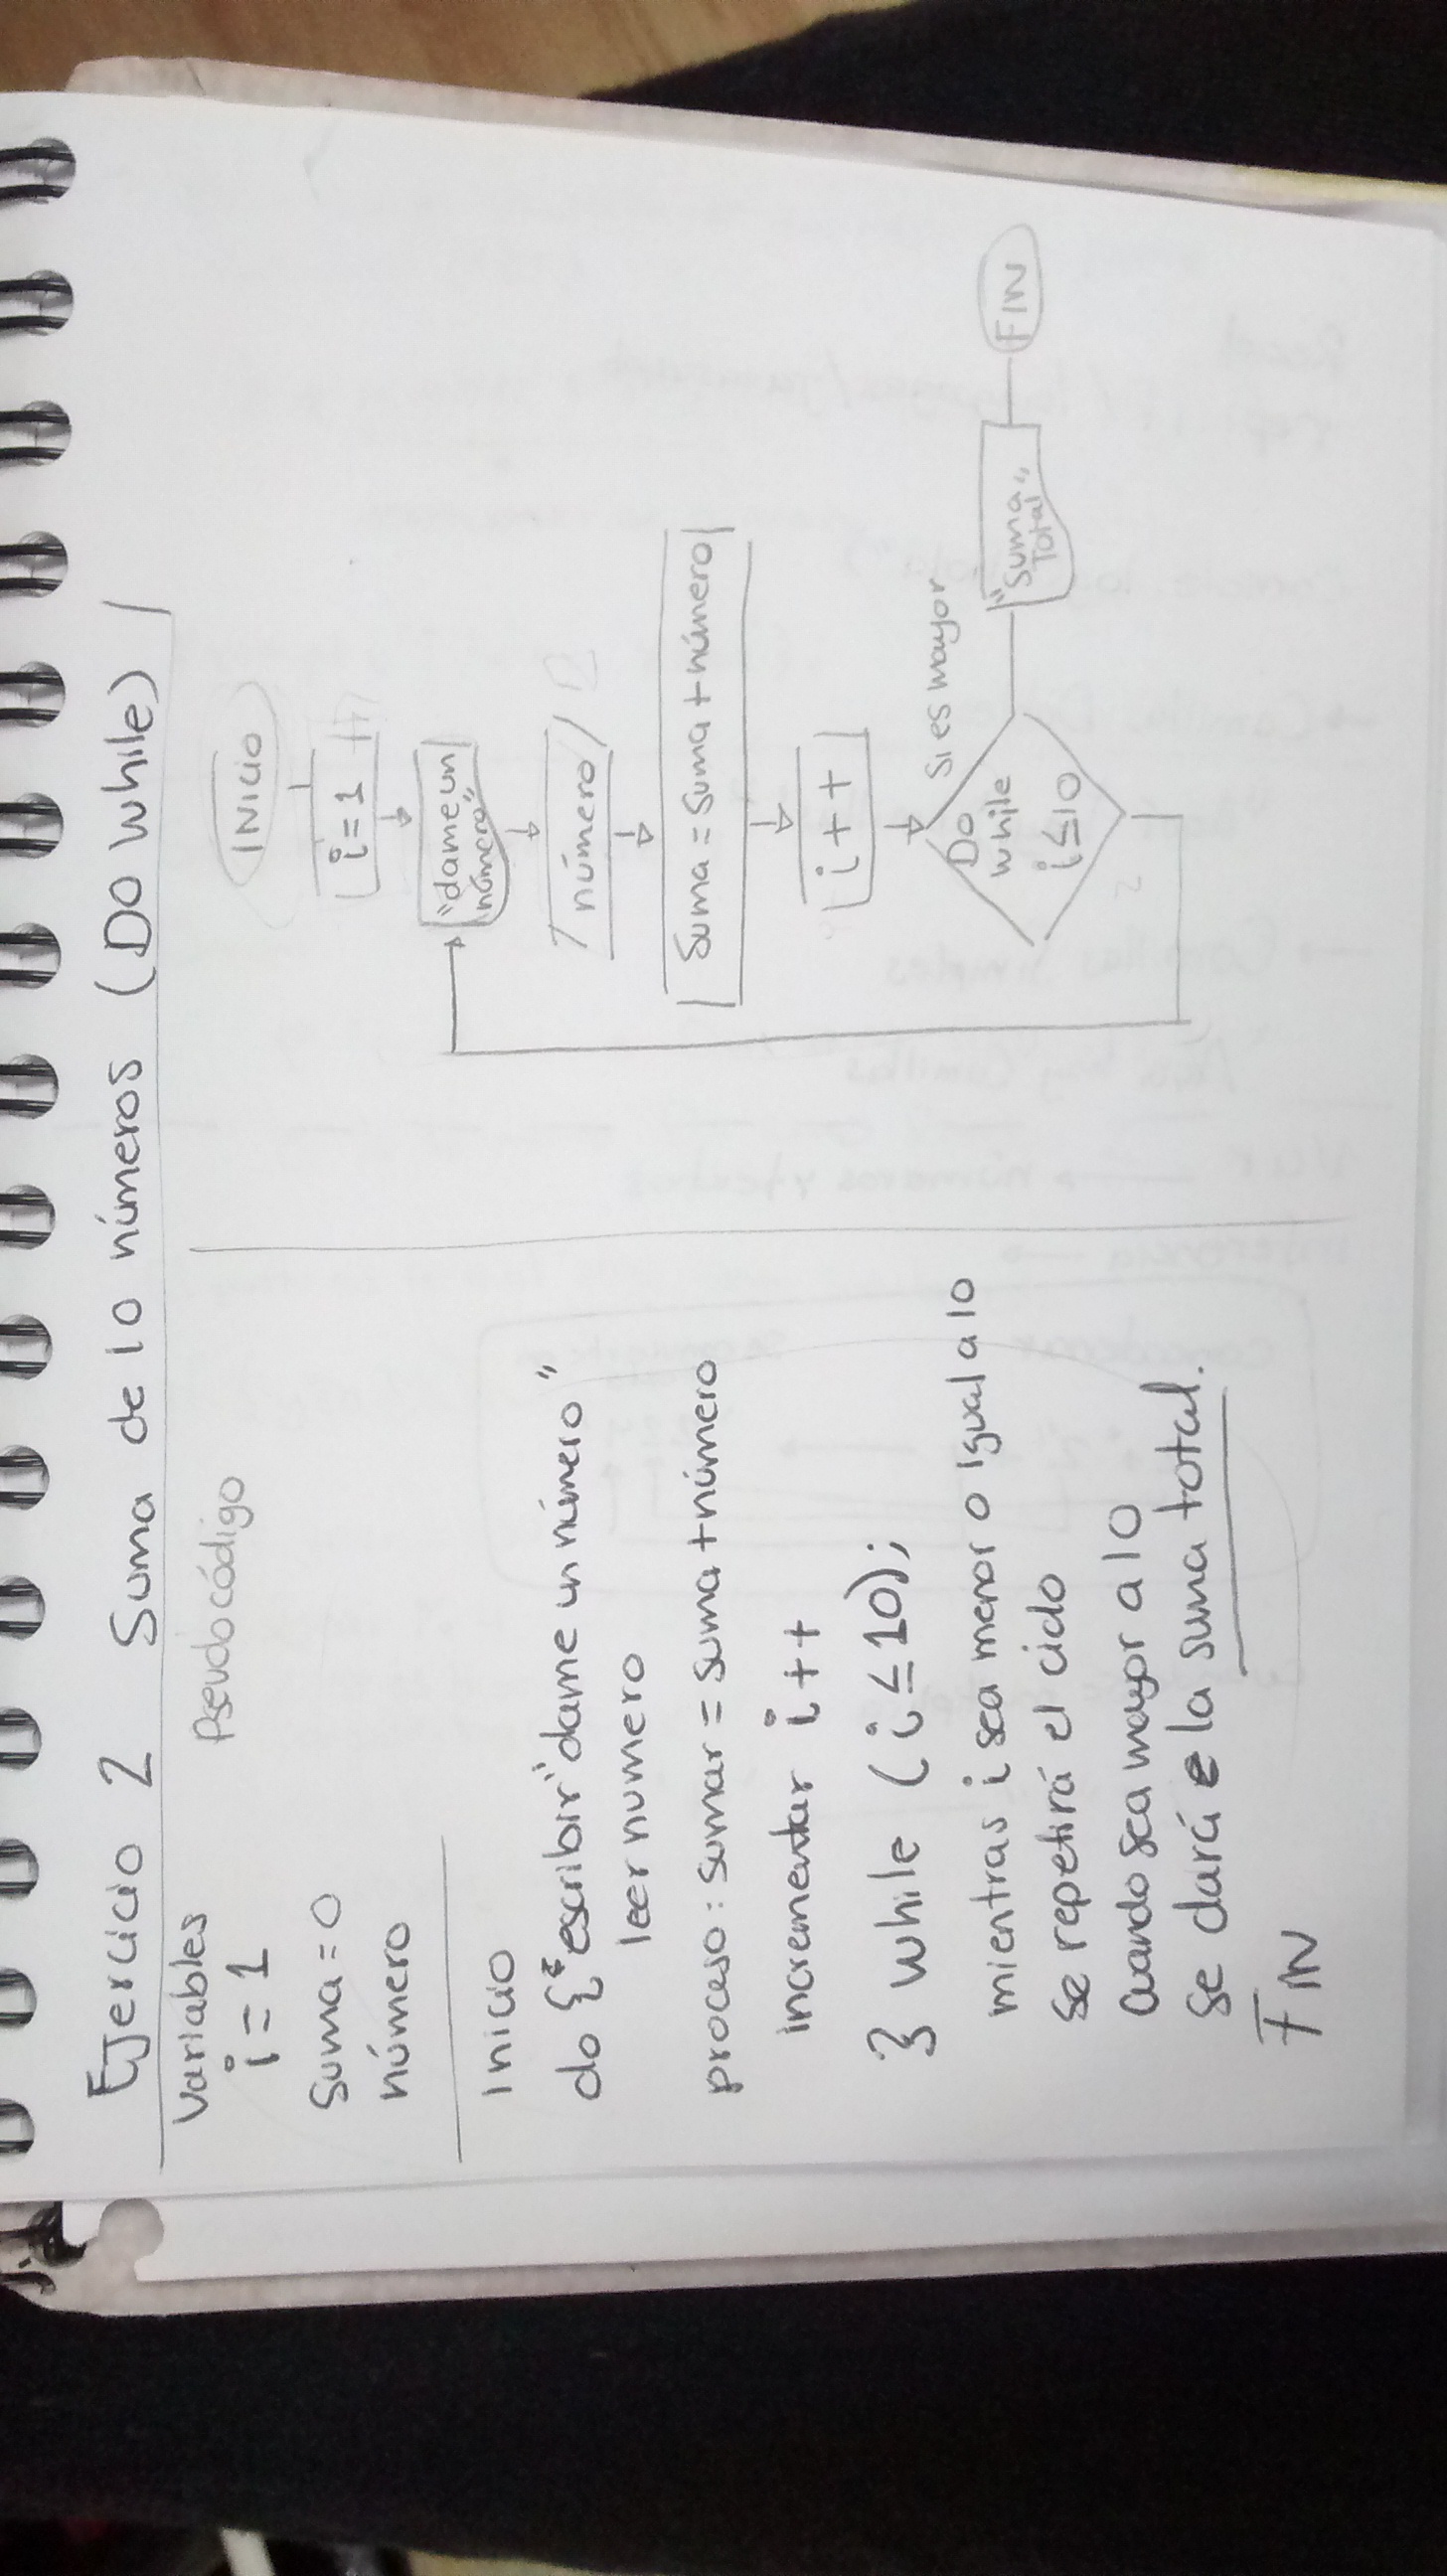 Ejercicio 2 Suma de 10 números (DO while)
Pseudocódigo
Variables
i = 1
Suma = 0
número
Inicio
do { "escribir" dame un número"
leer numero
proceso: sumar = suma + número
incrementar i++
} while (i ≤ 10);
mientras i sea menor o igual a 10
se repetirá el ciclo
cuando sea mayor a 10
se dará e la suma total.
FIN
INICIO
i = 1
"dame un
número"
número
Suma = Suma + número
i++
DO
while
i ≤ 10
Si es mayor
"Suma
Total"
FIN